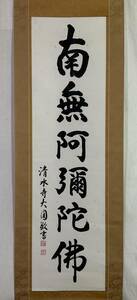 南無阿彌陀佛
清水寺大圓敬書